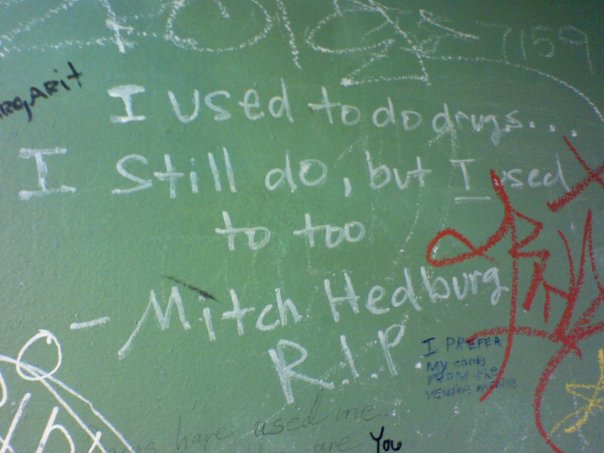 7159
I used to do drugs...
I still do, but I used
to too
- Mitch Hedburg
R.I.P.
I PREFER
My candy
VENDING
have used me...
are You